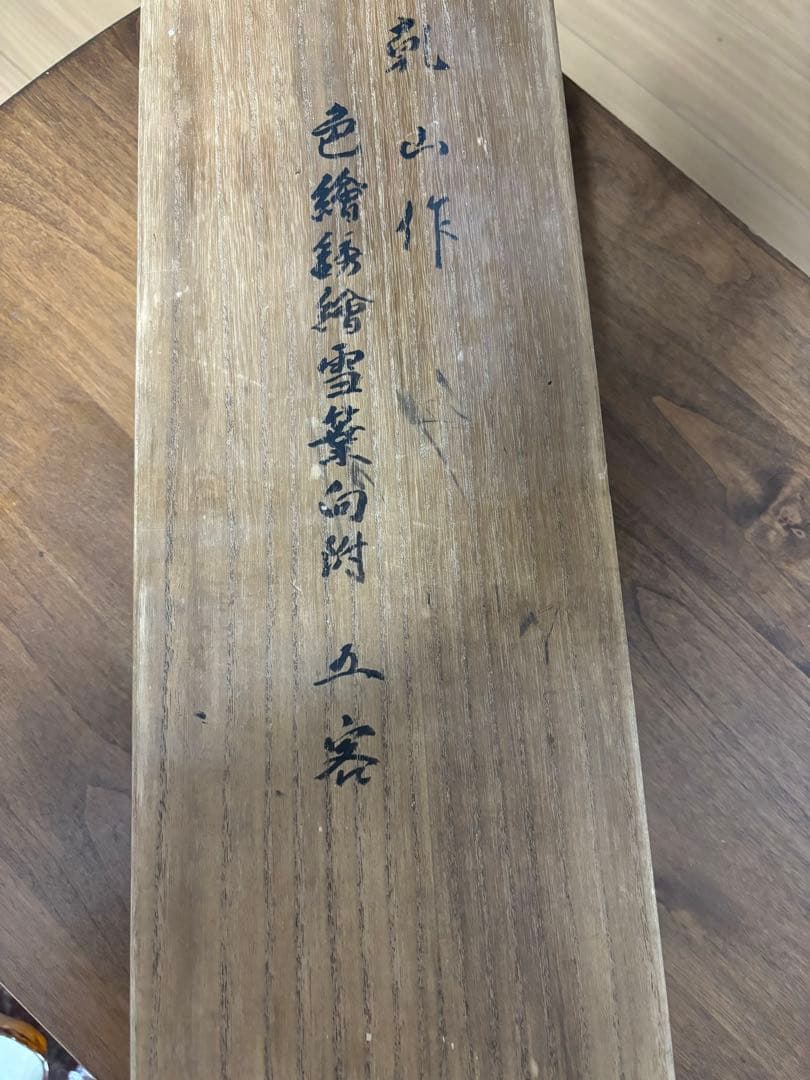 乾山作
色繪銹繪雪葉向附 五客